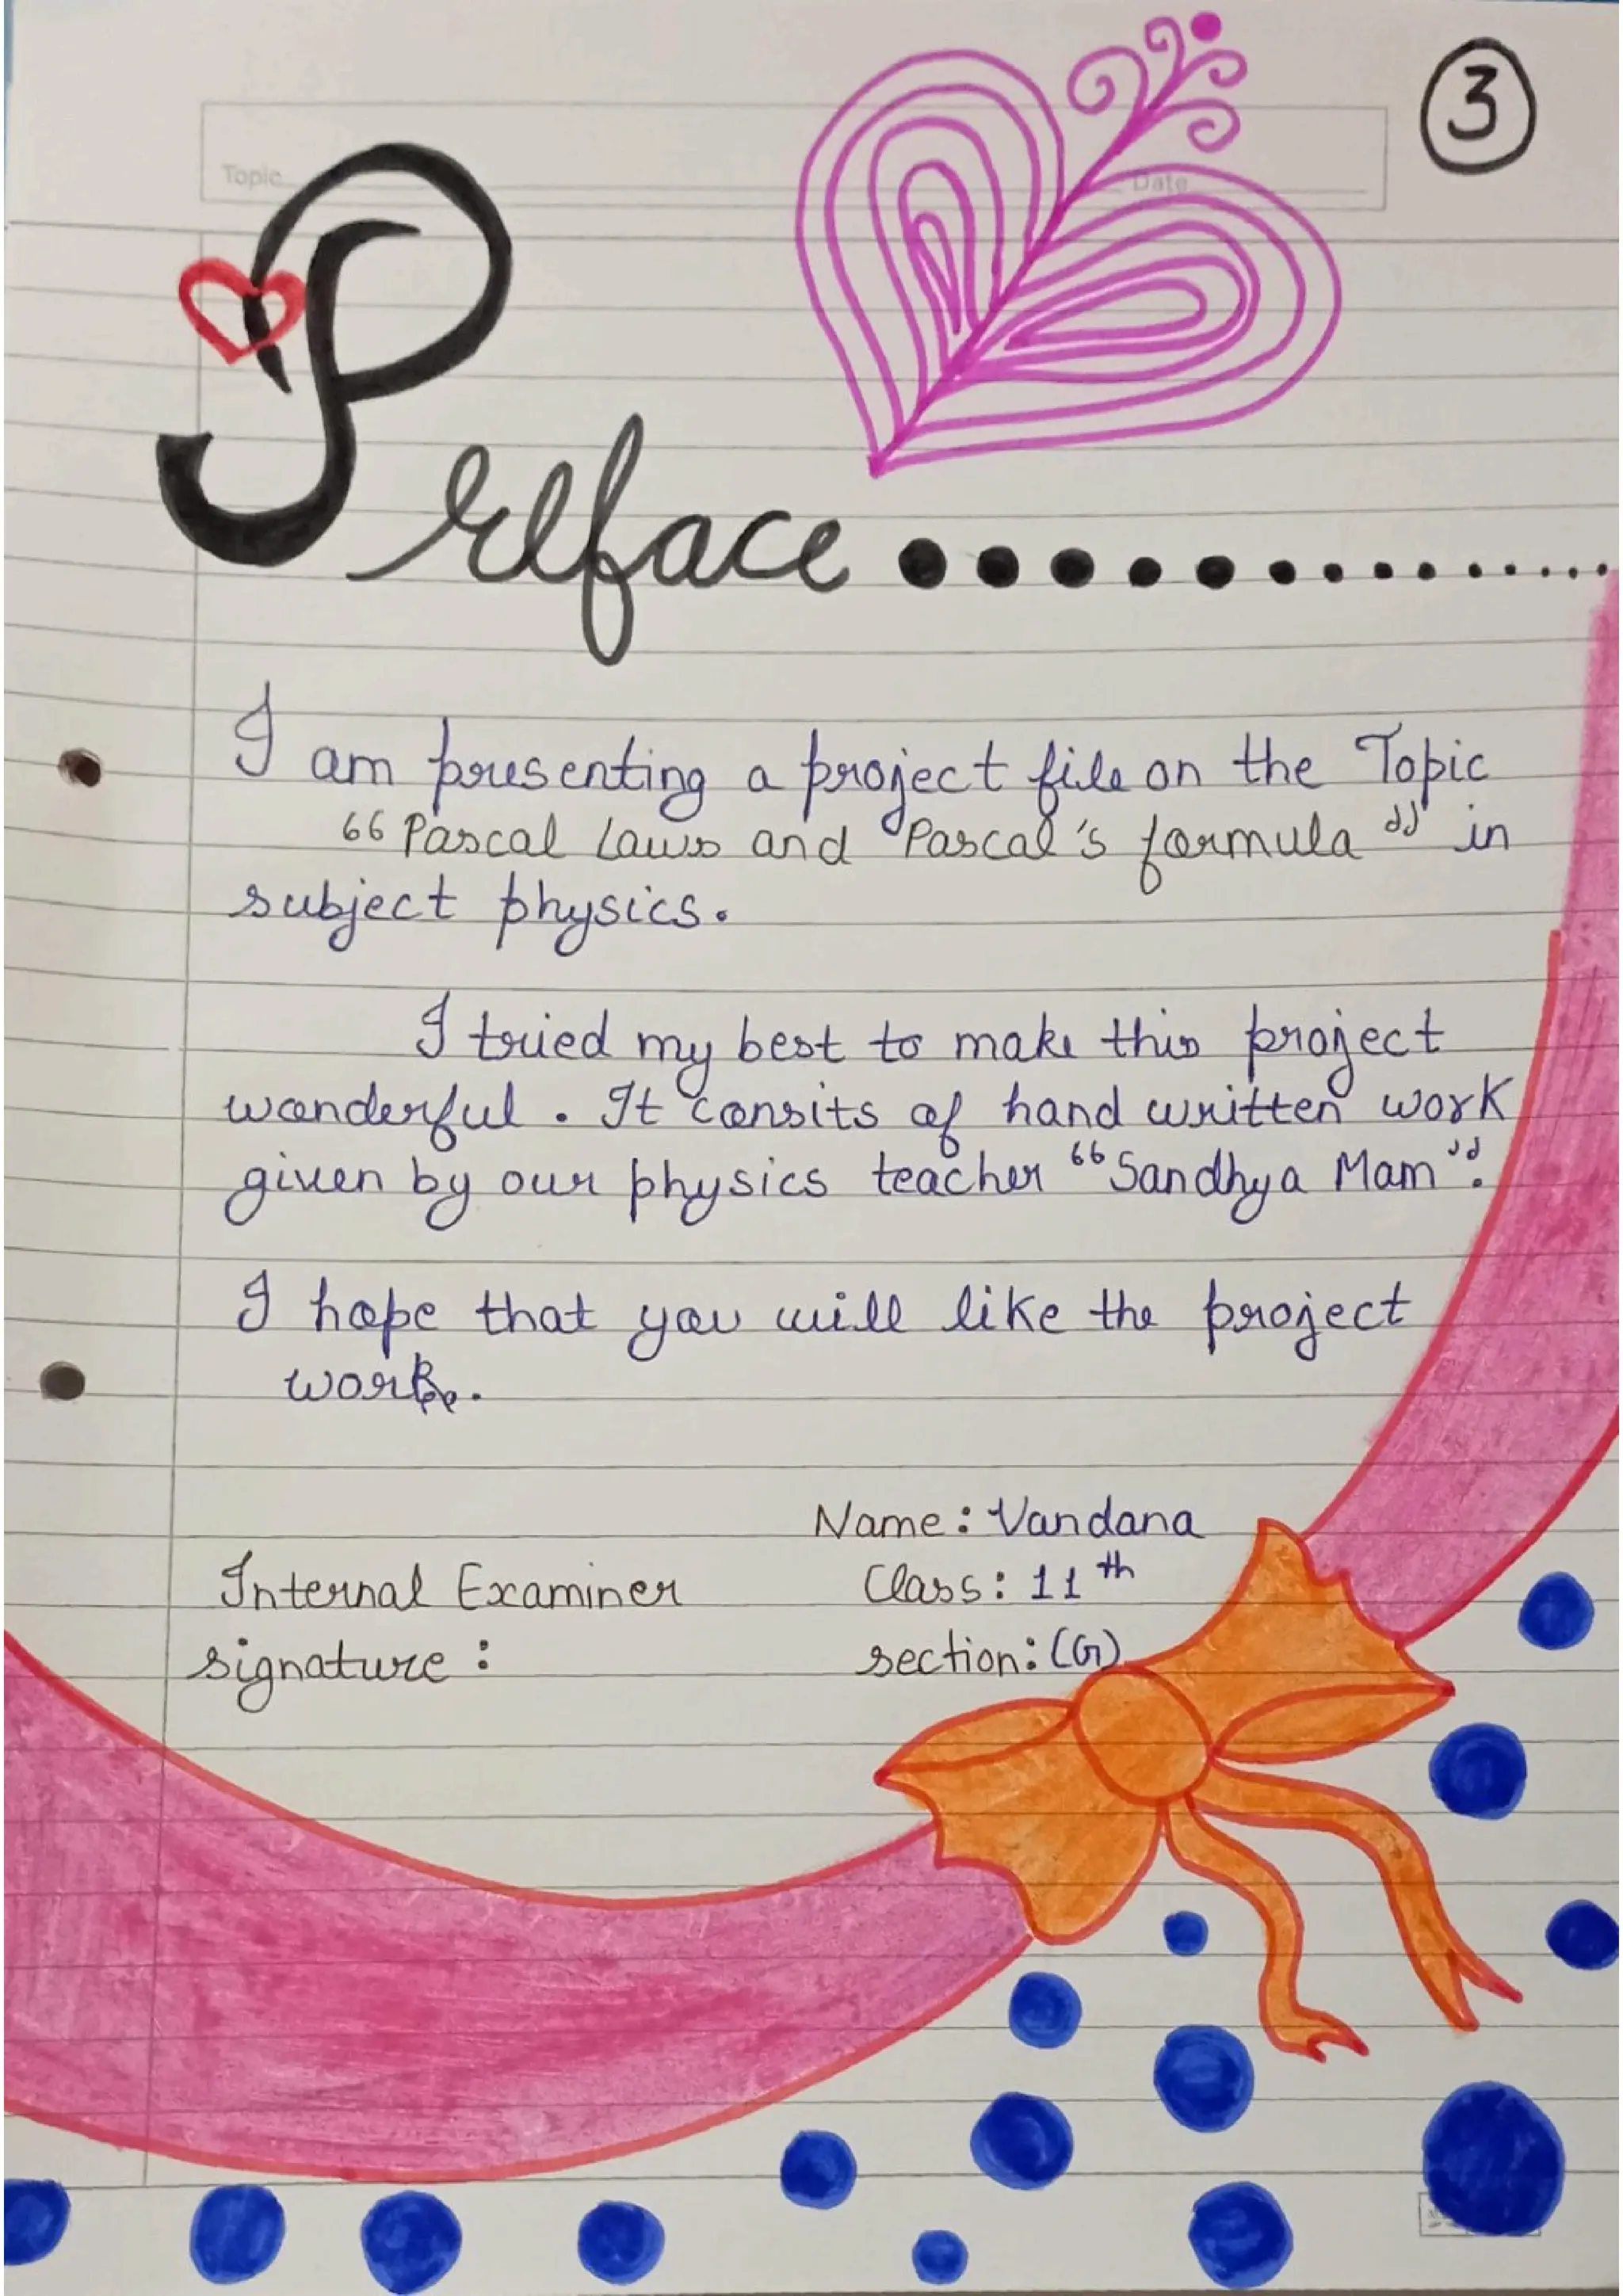 3
Topic Date
Preface
I am presenting a project file on the Topic
“Pascal Laws and Pascal's formula” in
subject physics.
I tried my best to make this project
wonderful. It consits of hand written work
given by our physics teacher “Sandhya Mam”.
I hope that you will like the project
work.
Name: Vandana
Internal Examiner Class: 11th
signature: section: (G)